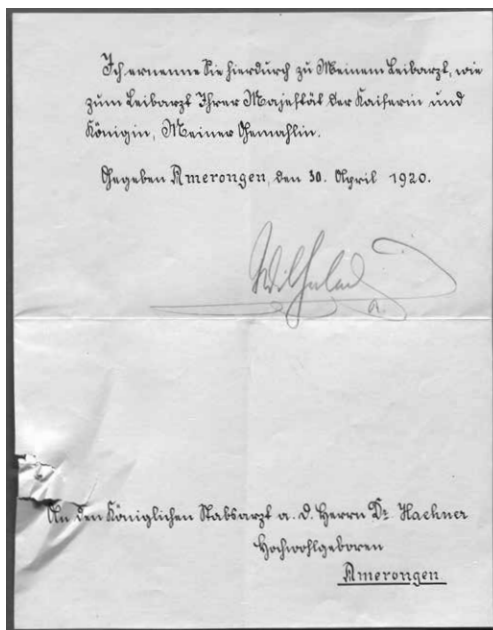 Ich ernenne Sie hierdurch zu Meinem Leibarzt, wie
zum Leibarzt Ihrer Majestät der Kaiserin und
Königin, Meiner Gemahlin.
Gegeben Amerongen, den 30. April 1920.
Wilhelm
An den Königlichen Stabsarzt a. D. Herrn Dr. Haehner
Hochwohlgeboren
Amerongen.